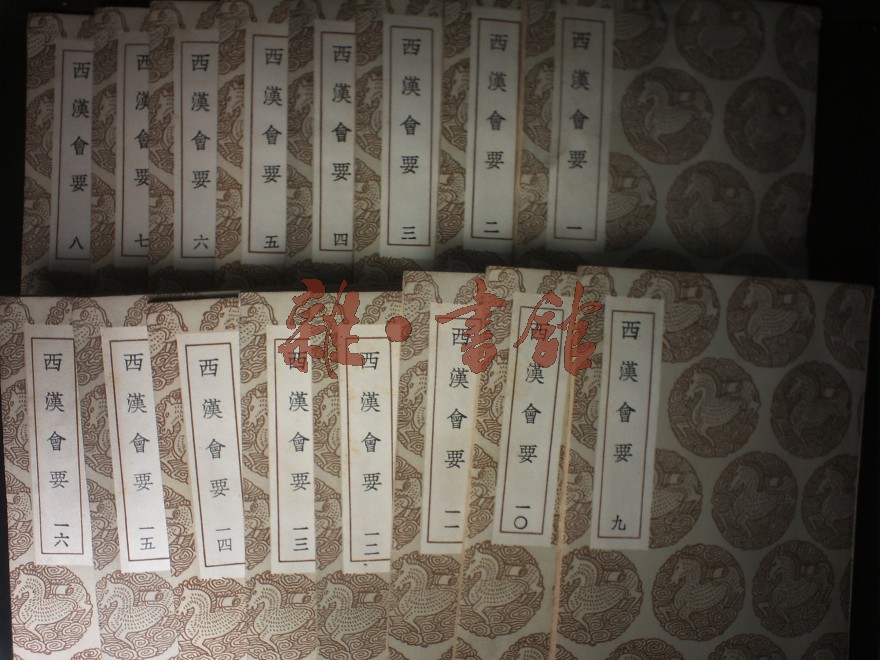 西漢會要 一
西漢會要 二
西漢會要 三
西漢會要 四
西漢會要 五
西漢會要 六
西漢會要 七
西漢會要 八
西漢會要 九
西漢會要 一〇
西漢會要 一一
西漢會要 一二
西漢會要 一三
西漢會要 一四
西漢會要 一五
西漢會要 一六
雜·書館